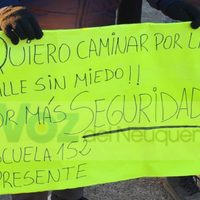 QUIERO CAMINAR POR LA
CALLE SIN MIEDO!!
POR MÁS SEGURIDAD
Voz
del Neuquén
ESCUELA 152
PRESENTE